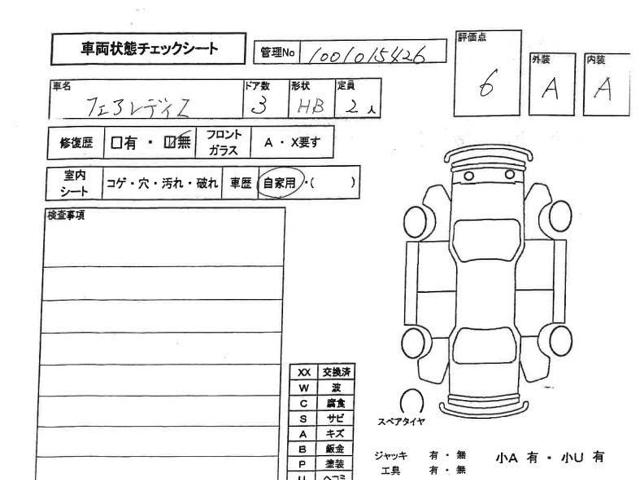 車両状態チェックシート 管理No 1001015426
評価点 6 外装 A 内装 A
車名 フェアレディZ ドア数 3 形状 HB 定員 2人
修復歴 □有・☑無 フロントガラス A・X要す
室内シート コゲ・穴・汚れ・破れ 車歴 自家用・( )
検査事項
XX 交換済
W 波
C 腐食
S サビ
A キズ
B 鈑金
P 塗装
U ヘコミ
スペアタイヤ
ジャッキ 有・無 小A 有・小U 有
工具 有・無